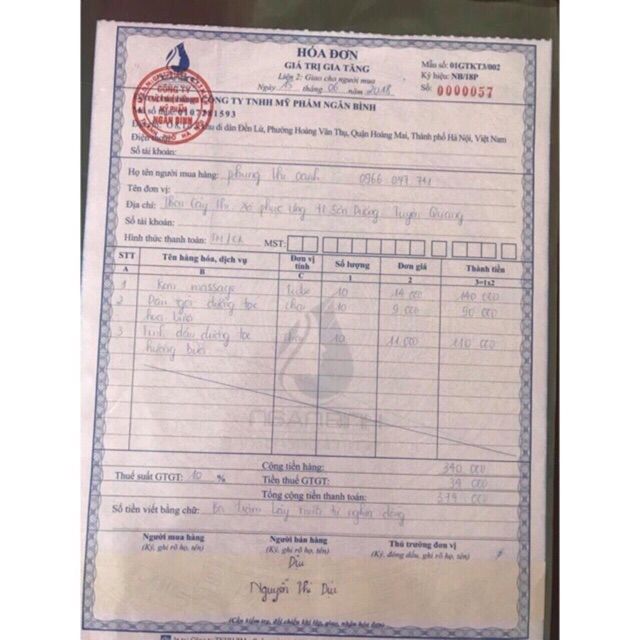 HÓA ĐƠN
GIÁ TRỊ GIA TĂNG
Liên 2: Giao cho người mua
Ngày 15 tháng 06 năm 2018
Mẫu số: 01GTKT3/002
Ký hiệu: NB/18P
Số: 0000057
CÔNG TY TNHH MỸ PHẨM NGÂN BÌNH
Mã số thuế: 0107281593
khu di dân Đền Lừ, Phường Hoàng Văn Thụ, Quận Hoàng Mai, Thành phố Hà Nội, Việt Nam
Điện thoại:
Số tài khoản:
Họ tên người mua hàng: phùng thị oanh 0966 097 741
Tên đơn vị:
Địa chỉ: xã phúc ứng H Sơn Dương Tuyên Quang
Số tài khoản:
Hình thức thanh toán: TM/CK MST:
STT Tên hàng hóa, dịch vụ Đơn vị tính Số lượng Đơn giá Thành tiền
A B C 1 2 3=1x2
1 Kem massage tube 10 14 000 140 000
2 Dầu gội dưỡng tóc chai 10 9 000 90 000
hoa bưởi
3 Tinh dầu dưỡng tóc chai 10 11 000 110 000
hương bưởi
NGANBINH
Cộng tiền hàng: 340 000
Thuế suất GTGT: 10 % Tiền thuế GTGT: 34 000
Tổng cộng tiền thanh toán: 374 000
Số tiền viết bằng chữ: Ba trăm bảy mươi tư nghìn đồng
Người mua hàng Người bán hàng Thủ trưởng đơn vị
(Ký, ghi rõ họ, tên) (Ký, ghi rõ họ, tên) (Ký, đóng dấu, ghi rõ họ, tên)
Dịu
Nguyễn Thị Dịu
(Cần kiểm tra, đối chiếu khi lập, giao, nhận hóa đơn)